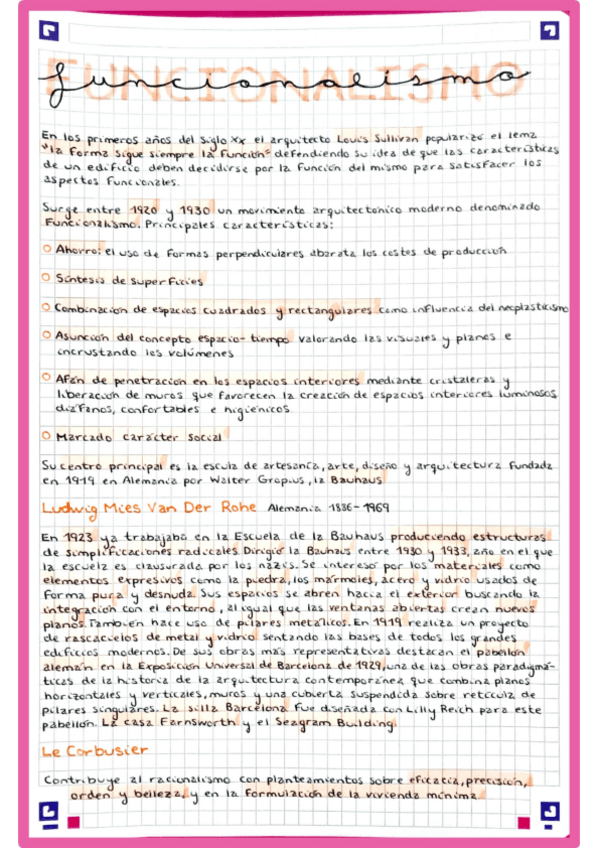 FUNCIONALISMO
funcionalismo
En los primeros años del siglo XX el arquitecto Louis Sullivan popularizó el lema
"la forma sigue siempre la función" defendiendo su idea de que las características
de un edificio deben decidirse por la función del mismo para satisfacer los
aspectos funcionales.
Surge entre 1920 y 1930 un movimiento arquitectónico moderno denominado
Funcionalismo. Principales características:
Ahorro: el uso de formas perpendiculares abarata los costes de producción
Síntesis de superficies
Combinación de espacios cuadrados y rectangulares como influencia del neoplasticismo
Asunción del concepto espacio-tiempo valorando las visuales y planos e
incrustando los volúmenes
Afán de penetración en los espacios interiores mediante cristaleras y
liberación de muros que favorecen la creación de espacios interiores luminosos
diáfanos, confortables e higiénicos
Marcado carácter social
Su centro principal es la escula de artesanía, arte, diseño y arquitectura fundada
en 1919 en Alemania por Walter Gropius, la Bauhaus
Ludwig Mies Van Der Rohe Alemania 1886-1969
En 1923 ya trabajaba en la Escuela de la Bauhaus produciendo estructuras
de simplificaciones radicales. Dirigió la Bauhaus entre 1930 y 1933, año en el que
la escuela es clausurada por los nazis. Se interesó por los materiales como
elementos expresivos como la piedra, los mármoles, acero y vidrio usados de
forma pura y desnuda. Sus espacios se abren hacia el exterior buscando la
integración con el entorno, al igual que las ventanas abiertas crean nuevos
planos. También hace uso de pilares metálicos. En 1919 realiza un proyecto
de rascacielos de metal y vidrio sentando las bases de todos los grandes
edificios modernos. De sus obras más representativas destacan el pabellón
alemán en la Exposición Universal de Barcelona de 1929, una de las obras paradigmá-
ticas de la historia de la arquitectura contemporánea que combina planos
horizontales y verticales, muros y una cubierta suspendida sobre retícula de
pilares singulares. La silla Barcelona. Fue diseñada con Lilly Reich para este
pabellón. La casa Farnsworth y el Seagram Building.
Le Corbusier
Contribuye al racionalismo con planteamientos sobre eficacia, precisión,
orden y belleza, y en la formulación de la vivienda mínima.